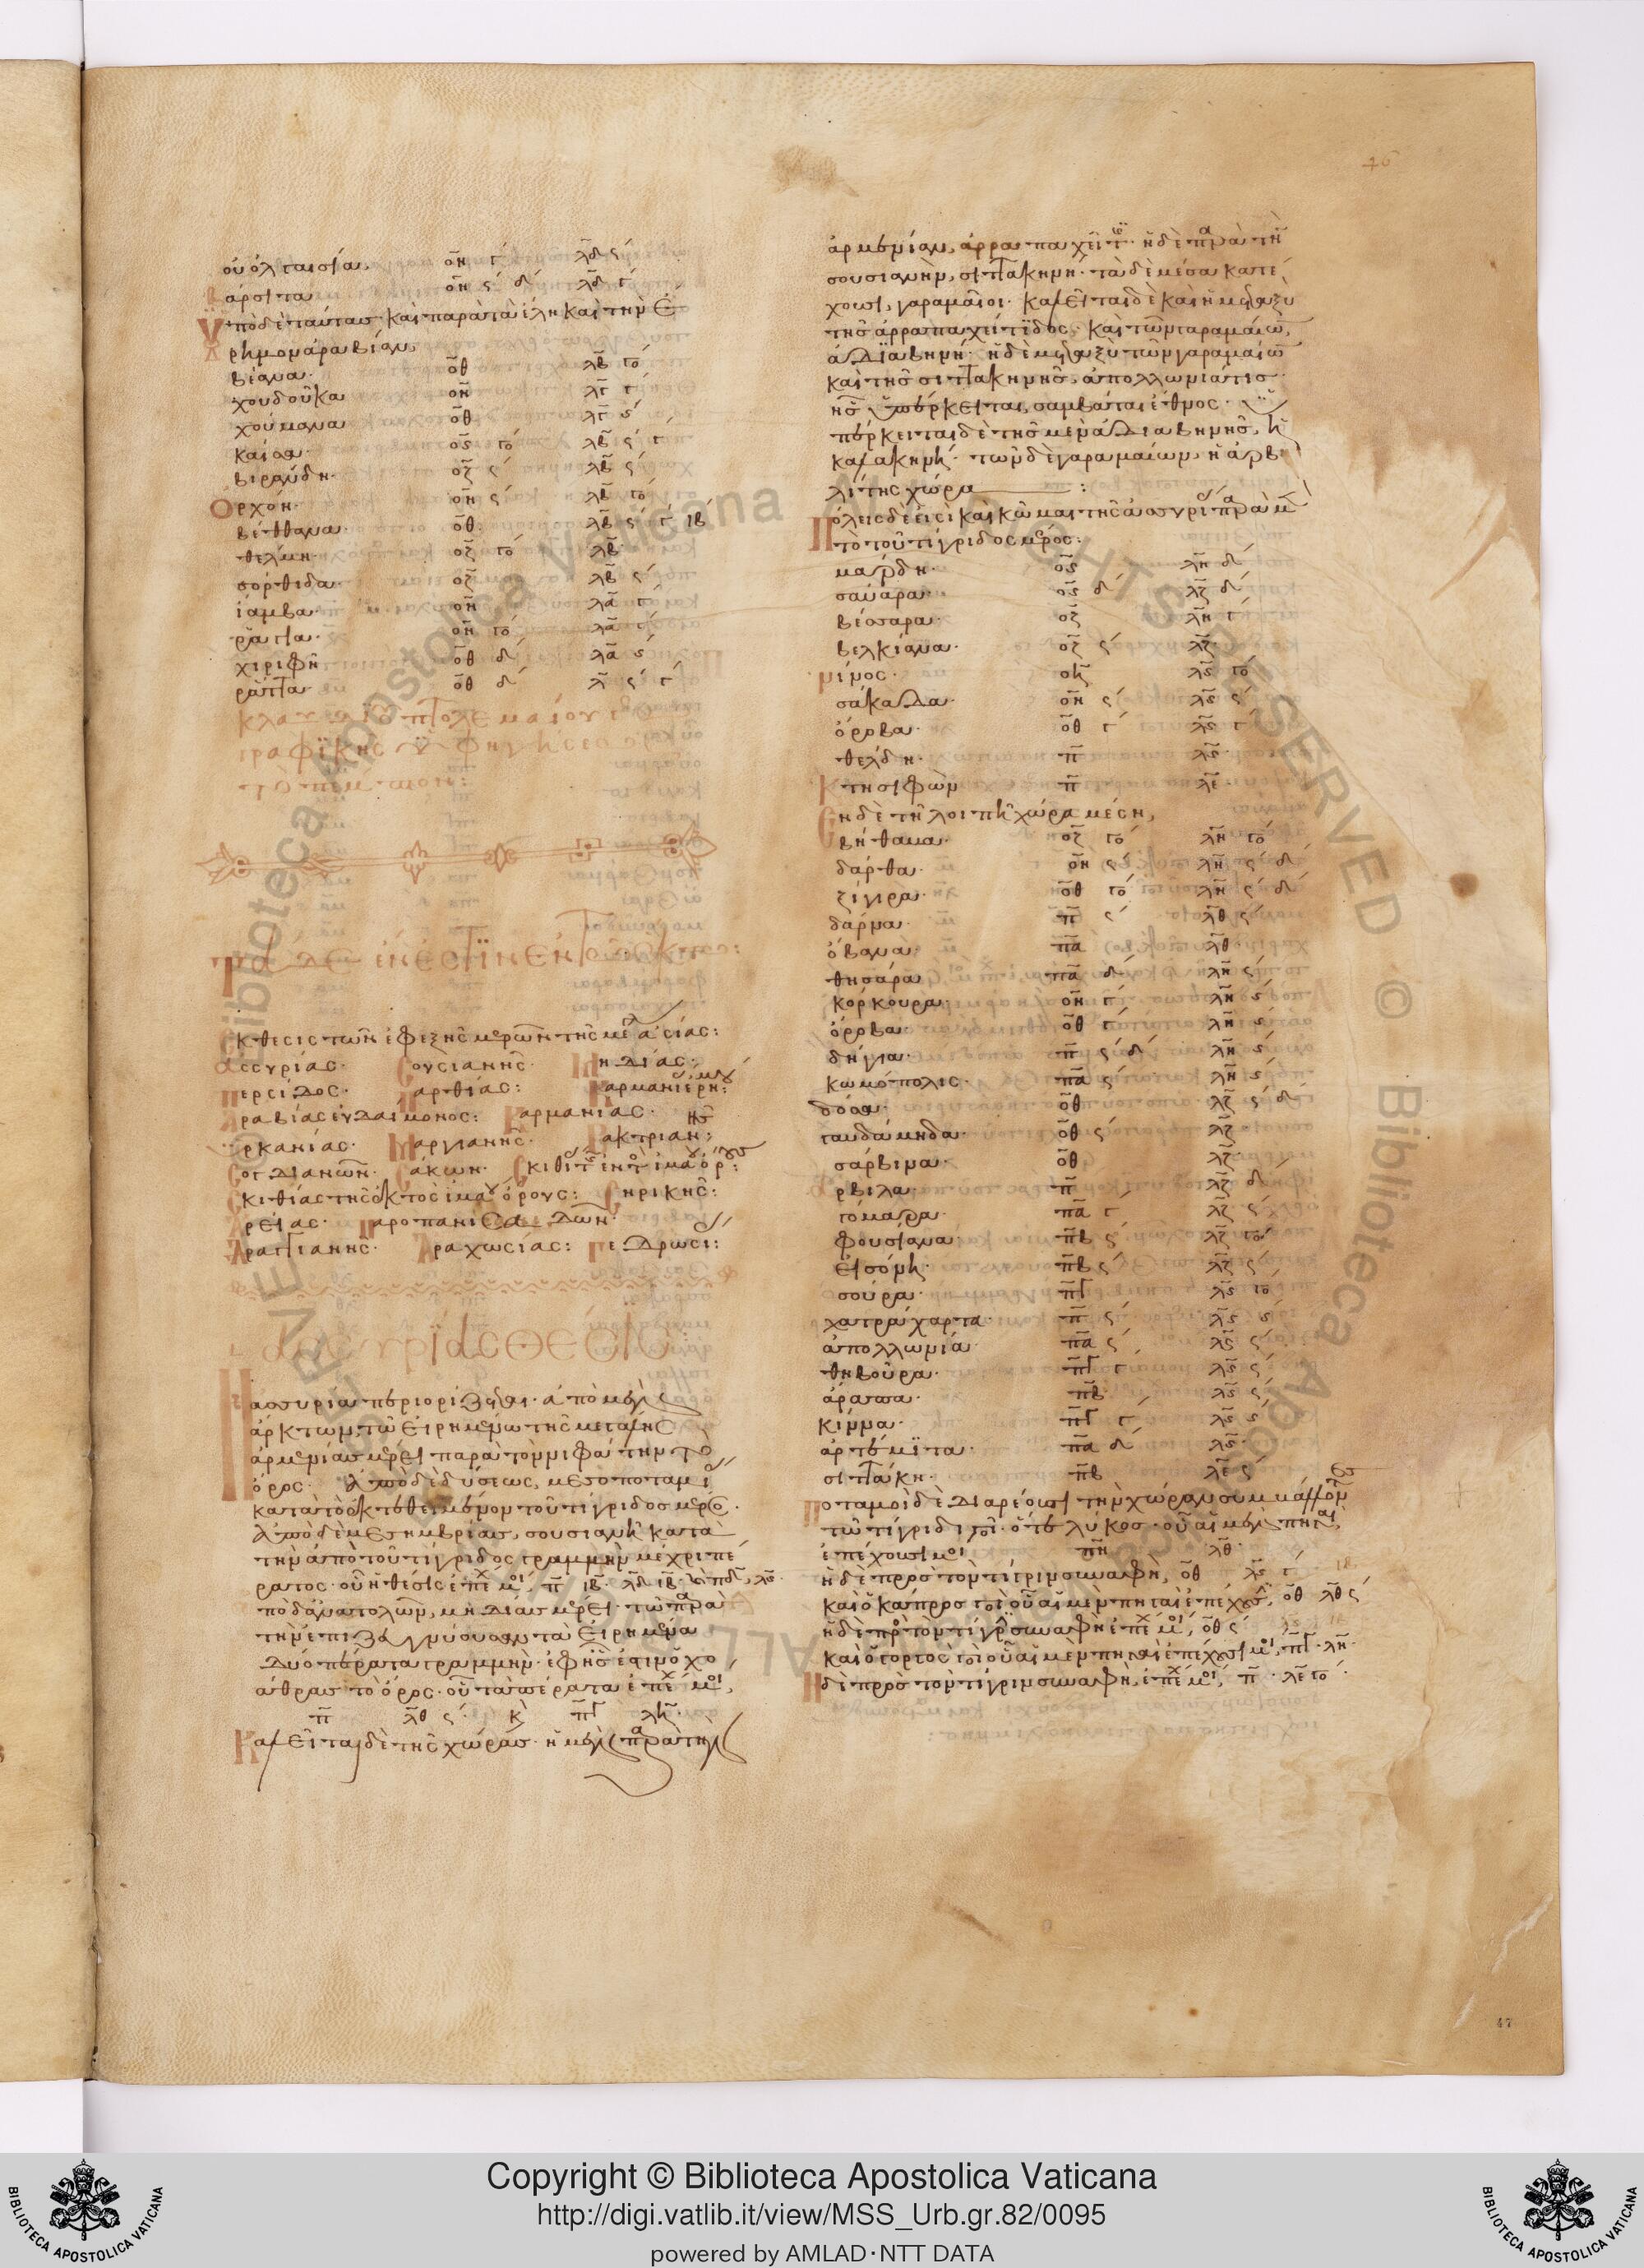 ουόλγαισία οη γ λδ ς
Βάρσιτα οη ς δ λδ γ
Υπὸ δὲ ταύτας καὶ παρὰ τὰ ἕλη καὶ τὴν ἔ
ρημον ἀραβίαν
βίανα· οθ λβ γο
χουδοῦκα οη λγ γ
χούμανα οθ λγ ς
καίσα· ος γο λβ ς γ
βιρανδη· οζ ς λβ ς
Ορχόη· οη ς λβ γο
βέθθανα· οθ λβ ς γ ιβ
θέλμη· οζ γο λβ
σόρθιδα οζ λβ ς
ἰάμβα οη λα γ
ῥάγια· οη γο λα γ
χιριφὴ οθ δ λα ς
ῥάτϊα οθ δ λ ς γ
κλαυδίου πτολεμαίου γεω
γραφικῆς ὑφηγήσεως
τὸ πέμπτον:
Τάδε ἔνεστιν ἐν τῷ ἕκτῳ:
Ἔκθεσις τῶν ἐφεξῆς μερῶν τῆς μεγ ἀσίας:
ἀσσυρίας· Σουσιανῆς· Μηδίας·
Περσίδος· Παρθίας: Καρμανί ἐρήμου
Ἀραβίας εὐδαίμονος: Καρμανίας·
Ὑρκανίας· Μαργιανῆς· Βακτριανῆς:
Σογδιανῶν· Σάκων· Σκιθί τ ἐντ ἰμάου όρους:
Σκιθίας τῆς ἐκτὸς ἰμάου όρους: Σηρικῆς:
Ἀρείας· Παροπανισαδῶν·
Δραγγιανῆς· Ἀραχωσίας: Γεδρωσι:
ἀσσυρίας θέσις:
Η ἀσσυρία περιορίζεται· ἀπὸ μὲν
ἄρκτων, τῷ εἰρημένῳ τῆς μεγάλης
ἀρμενίας μέρει παρὰ τὸν νιφάτην τὸ
ὄρος· ἀπὸ δὲ δύσεως, μεσοποταμί
κατὰ τὸ ἐκτεθειμένον τοῦ τίγριδος μέρος·
ἀπὸ δὲ μεσημβρίας, σουσιανῇ κατὰ
τὴν ἀπὸ τοῦ τίγριδος γραμμὴν μέχρι πέ
ρατος· οὗ ἡ θέσις ἐπέχ μοί
πὸ δ ἀνατολῶν, μηδίας μέρει· τῷ παρὰ
τὴν ἐπιζευγνύουσαν τὰ εἰρημένα
δύο πέρατα γραμμὴν· ἐφ ἧς ἐστι ὁ χο
άθρας τὸ ὄρος· οὗ τὰ πέρατα ἐπέχ μοί
π λθ ς· κ πγ λη·
Καλεῖται δὲ τῆς χώρας· ἡ μὲν παρὰ τὴν
ἀρμενίαν, ἀρραπαχεῖτ· ἡ δὲ παρὰ τὴν
σουσιανὴν, σιττακηνή· τὰ δὲ μέσα κατέ
χουσι, γαραμαῖοι· καλεῖται δὲ καὶ ἡ μεταξὺ
τῆς ἀρραπαχείτιδος· καὶ τῶν γαραμαίων,
ἀδιαβηνή· ἡ δὲ μεταξὺ τῶν γαραμαίων
καὶ τῆς σιττακηνῆς, ἀπολλωνιάτις·
ἧς ὑπέρκειται, σαμβάται ἔθνος·
πέρκειται δὲ τῆς μὲν ἀδιαβηνῆς, ἡ
καλακηνή· τῶν δὲ γαραμαίων, ἡ ἀρβη
λῖτης χώρα :
Πόλεις δὲ εἰσὶ καὶ κῶμαι τῆς ἀσσυρί παρὰ μ
τὸ τοῦ τίγριδος μέρος:
μάρδη· ος λη δ
σαύαρα· ος δ λζ δ
βέσσαρα· οζ λη γ
βελκίανα· οζ ς λζ
νίνος· οη λς γο
σάκαδα· οη ς λς ς
ὄροβα· οθ γ λς γ
θέλδη· π λς
Κτησιφῶν π λε
Εν δὲ τῇ λοιπῇ χώρα μέση,
βήθαμα· οζ γο λη γο
δάρθα· οη ς λη ς δ
ζίγιρα· οθ γο λη ς δ
δάρμα· π ς λθ ς
ὄβανα· πα λθ
θησάρα πα δ λη ς
κόρκουρα· οη γ λη ς
ὄροβα· οθ γ λη ς
δήγια· π ς δ λη ς
κωμόπολις· πα ς λη ς
δόσα· οθ λζ ς δ
γαυδάμηδα· οθ ς λζ
σάρβινα· οθ λζ
ρβιλα· π λζ δ
γόμαρα· πα γ λζ ς
φουσίανα πβ ς λζ γο
εἰσόνη· πβ ς λζ ς
σούρα· πγ λς γο
χατράχαρτα· π ς λς ς
ἀπολλωνία πα ς λς ς
θηβοῦρα· πγ γ λς ς
ἄραπα· πβ λς ς
κίννα· πγ γ λς ς
ἀρτέμιτα· πα δ λς
σιττάκη· πβ λε ς
Ποταμοὶ δὲ διαρέουσι τὴν χώραν συμβάλλοντες
τῷ τίγριδι ποτ· ὅ τε λύκος· οὗ αἱ μὲν πηγαὶ
ἐπέχουσι μοί πη λθ·
ἡ δὲ πρὸς τὸν τίγριν συναφὴ, οθ λς γ
καὶ ὁ κάπρος ποτ οὗ αἱ μὲν πηγαὶ ἐπέχουσι, οθ λθ ς
ἡ δὲ πρ τὸν τίγρ συναφὴ ἐπέχ μοί, οθ ς
καὶ ὁ γόργος ποτ οὗ αἱ μὲν πηγαὶ ἐπέχουσι μοί, πγ· λη·
Ἡ δὲ πρὸς τὸν τίγριν συναφὴ, ἐπέχ μοί, π· λε γο·
47
Biblioteca Apostolica Vaticana
ALL RIGHTS RESERVED © Biblioteca Apostolica Vaticana
Copyright © Biblioteca Apostolica Vaticana
http://digi.vatlib.it/view/MSS_Urb.gr.82/0095
powered by AMLAD·NTT DATA
BIBLIOTECA APOSTOLICA VATICANA
BIBLIOTECA APOSTOLICA VATICANA